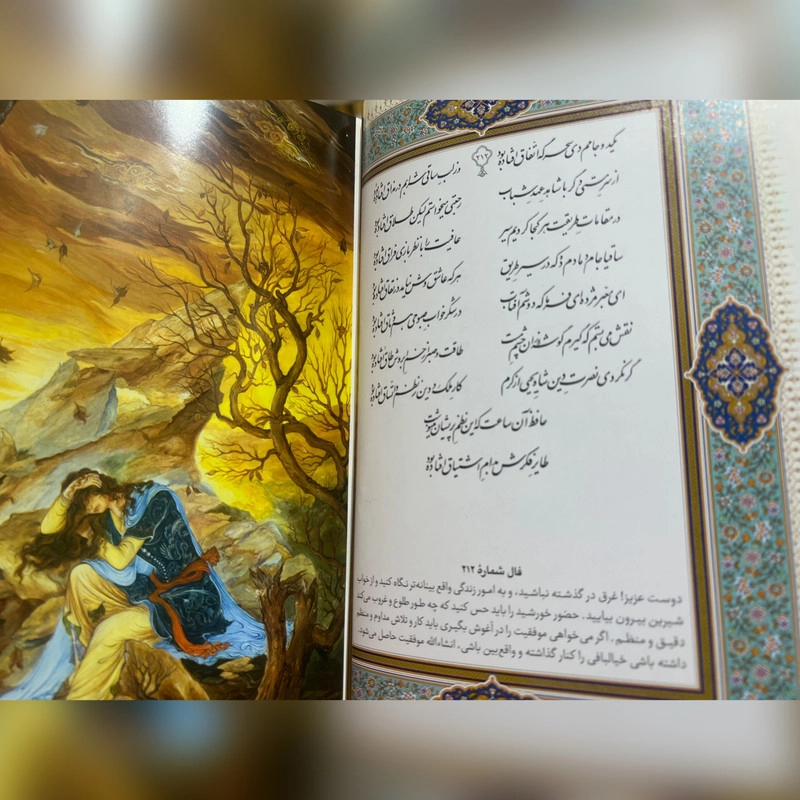 ۲۱۲
یکدو جامم دی سحرگه اتفاق افتاده بود
وز لب ساقی شرابم در مذاق افتاده بود
از سر مستی دگر با شاهد عهد شباب
رجعتی میخواستم لیکن طلاق افتاده بود
در مقامات طریقت هر کجا کردیم سیر
عافیت را با نظربازی فراق افتاده بود
ساقیا جام دمادم ده که در سیر طریق
هر که عاشق وش نیامد در نفاق افتاده بود
ای معبر مژده‌ای فرما که دوشم آفتاب
در شکرخواب صبوحی هم وثاق افتاده بود
نقش می‌بستم که گیرم گوشه‌ای زان چشم مست
طاقت و صبر از خم ابروش طاق افتاده بود
گر نکردی نصرت دین شاه یحیی از کرم
کار ملک و دین ز نظم و اتساق افتاده بود
حافظ آن ساعت که این نظم پریشان می‌نوشت
طایر فکرش بدام اشتیاق افتاده بود
فال شمارهٔ ۲۱۲
دوست عزیز! غرق در گذشته نباشید، و به امور زندگی واقع بینانه‌تر نگاه کنید و از خواب
شیرین بیرون بیایید. حضور خورشید را باید حس کنید که چه طور طلوع و غروب می‌کند
دقیق و منظم. اگر می خواهی موفقیت را در آغوش بگیری باید کار و تلاش مداوم و منظم
داشته باشی خیالبافی را کنار گذاشته و واقع‌بین باشی. انشاءالله موفقیت حاصل می‌شود.